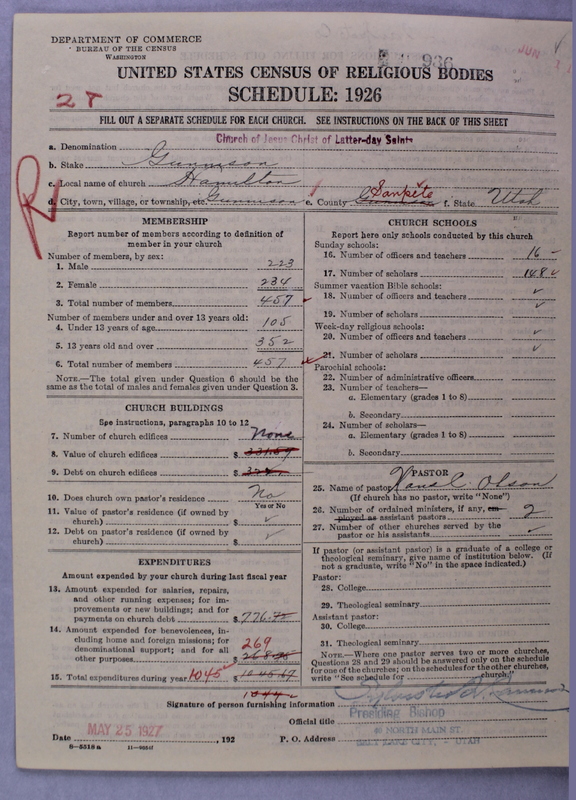 DEPARTMENT OF COMMERCE
BUREAU OF THE CENSUS
WASHINGTON
936
JUN
UNITED STATES CENSUS OF RELIGIOUS BODIES
SCHEDULE: 1926
28
FILL OUT A SEPARATE SCHEDULE FOR EACH CHURCH. SEE INSTRUCTIONS ON THE BACK OF THIS SHEET
a. Denomination Church of Jesus Christ of Latter-day Saints
b. Stake Gunnison
c. Local name of church Hamilton
d. City, town, village, or township, etc. Gunnison e. County Gunnison Sanpete f. State Utah
R
MEMBERSHIP
Report number of members according to definition of member in your church
Number of members, by sex:
1. Male 223
2. Female 234
3. Total number of members 457
Number of members under and over 13 years old:
4. Under 13 years of age 105
5. 13 years old and over 352
6. Total number of members 457
NOTE.—The total given under Question 6 should be the same as the total of males and females given under Question 3.
CHURCH BUILDINGS
See instructions, paragraphs 10 to 12
7. Number of church edifices None
8. Value of church edifices $
9. Debt on church edifices $
10. Does church own pastor's residence No
Yes or No
11. Value of pastor's residence (if owned by church) $ ✓
12. Debt on pastor's residence (if owned by church) $ ✓
EXPENDITURES
Amount expended by your church during last fiscal year
13. Amount expended for salaries, repairs, and other running expenses; for improvements or new buildings; and for payments on church debt $ 776.72
14. Amount expended for benevolences, including home and foreign missions; for denominational support; and for all other purposes 269
15. Total expenditures during year 1045 $
1044
CHURCH SCHOOLS
Report here only schools conducted by this church
Sunday schools:
16. Number of officers and teachers 16
17. Number of scholars 148
Summer vacation Bible schools:
18. Number of officers and teachers ✓
19. Number of scholars ✓
Week-day religious schools:
20. Number of officers and teachers ✓
21. Number of scholars ✓
Parochial schools:
22. Number of administrative officers
23. Number of teachers—
a. Elementary (grades 1 to 8)
b. Secondary
24. Number of scholars—
a. Elementary (grades 1 to 8)
b. Secondary
PASTOR
25. Name of pastor Olson
(If church has no pastor, write "None")
26. Number of ordained ministers, if any, employed as assistant pastors 2
27. Number of other churches served by the pastor or his assistants ✓
If pastor (or assistant pastor) is a graduate of a college or theological seminary, give name of institution below. (If not a graduate, write "No" in the space indicated.)
Pastor:
28. College
29. Theological seminary
Assistant pastor:
30. College
31. Theological seminary
NOTE.—Where one pastor serves two or more churches, Questions 28 and 29 should be answered only on the schedule for one of the churches; on the schedules for the other churches, write "See schedule for church."
Signature of person furnishing information
Official title Presiding Bishop
Date MAY 25 1927, 192
P. O. Address 40 NORTH MAIN ST. SALT LAKE CITY, UTAH
8—5518 a